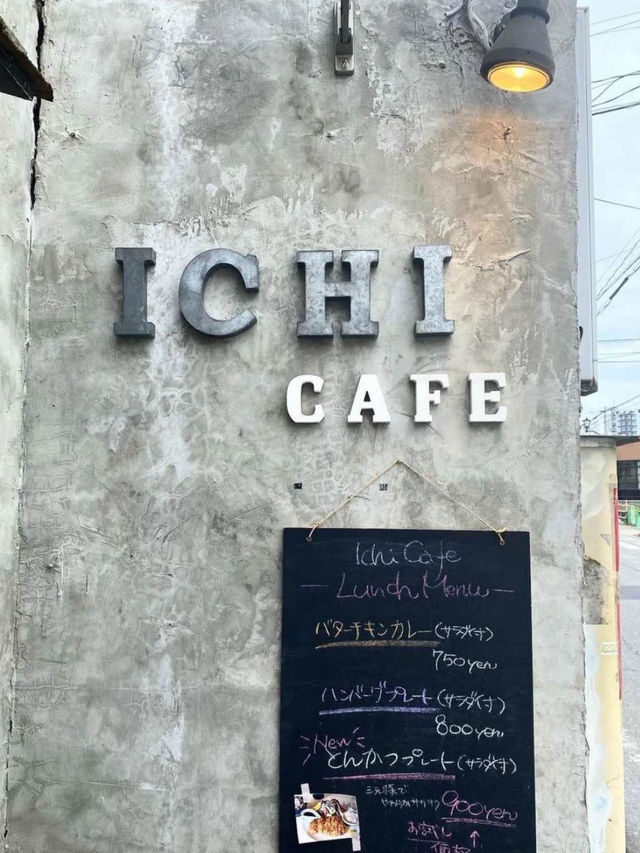 ICHI
CAFE
Ichi Cafe
— Lunch Menu —
バターチキンカレー(サラダ付)
750yen
ハンバーグプレート(サラダ付)
800yen
New
とんかつプレート(サラダ付)
三元豚で
やわらかサクサク
900yen
お試し